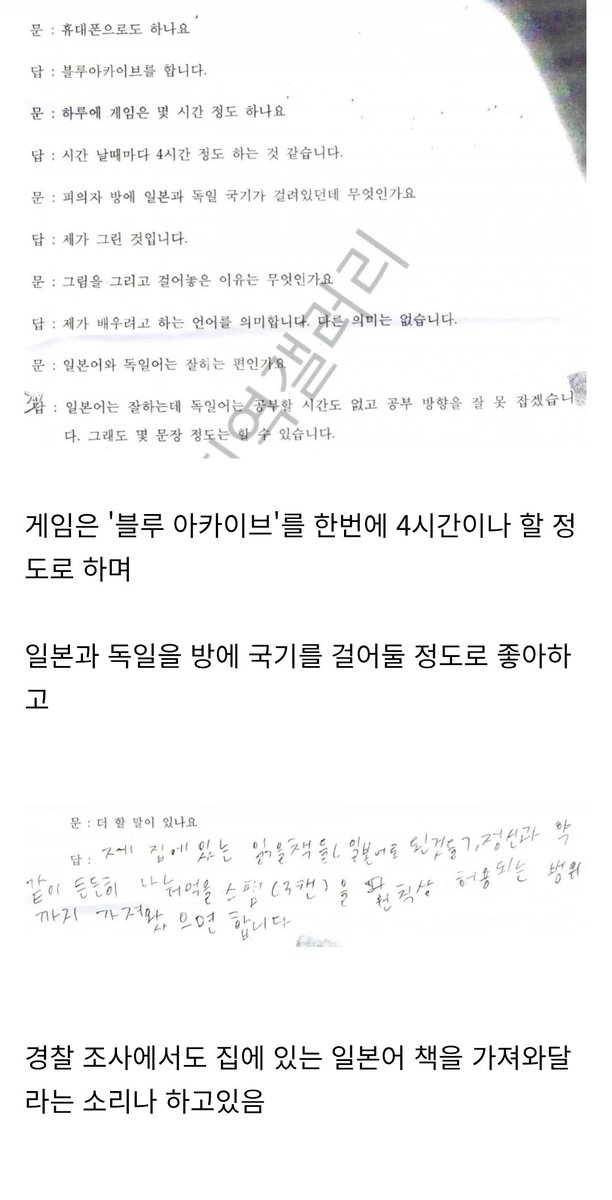 문 : 휴대폰으로도 하나요
답 : 블루아카이브를 합니다.
문 : 하루에 게임은 몇 시간 정도 하나요
답 : 시간 날때마다 4시간 정도 하는 것 같습니다.
문 : 피의자 방에 일본과 독일 국기가 걸려있던데 무엇인가요
답 : 제가 그린 것입니다.
문 : 그림을 그리고 걸어놓은 이유는 무엇인가요
답 : 제가 배우려고 하는 언어를 의미합니다. 다른 의미는 없습니다.
문 : 일본어와 독일어는 잘하는 편인가요
답 : 일본어는 잘하는데 독일어는 공부할 시간도 없고 공부 방향을 잘 못 잡겠습니
다. 그래도 몇 문장 정도는 할 수 있습니다.
갤러리
게임은 '블루 아카이브'를 한번에 4시간이나 할 정
도로 하며
일본과 독일을 방에 국기를 걸어둘 정도로 좋아하
고
문 : 더 할 말이 있나요
답 : 제 집에 있는 읽을책들(일본어로 된것들), 정신과 약
같이 든든히 스팸(3캔)을 원칙상 허용되는 범위
까지 가져왔으면 합니다
경찰 조사에서도 집에 있는 일본어 책을 가져와달
라는 소리나 하고있음